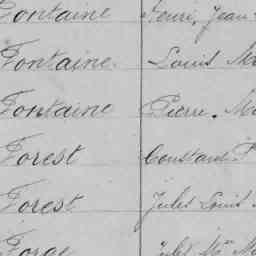 Fontaine Henri, Jean
Fontaine Louis
Fontaine Pierre
Forest Constant
Forest Jules Louis
Forge Jules